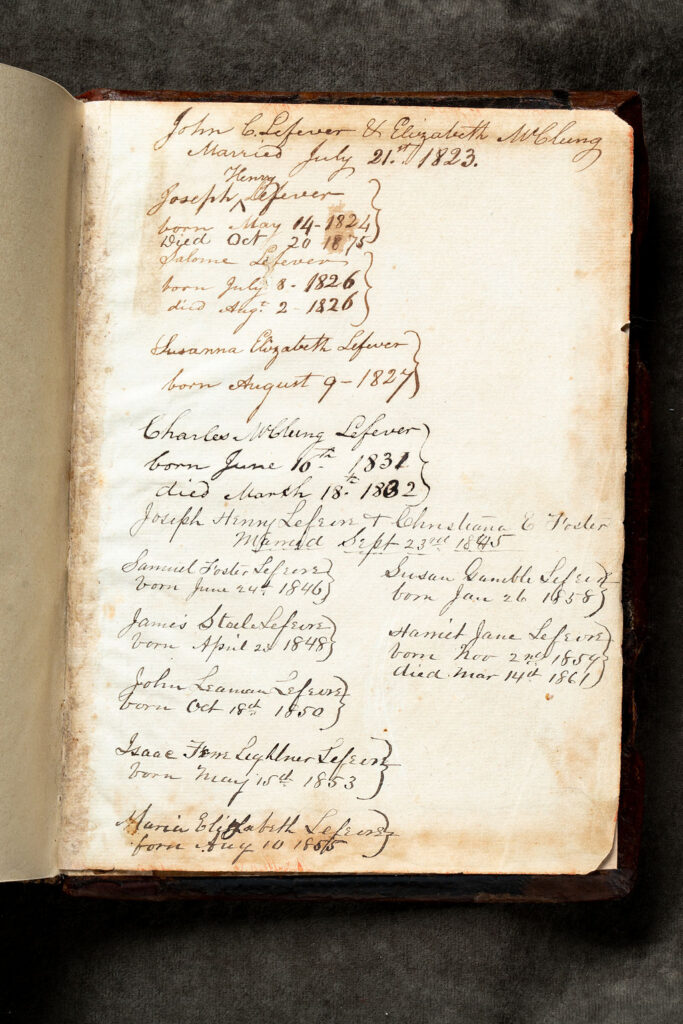 John C. Lefever & Elizabeth McClung
Married July 21.st 1823.
Henry
Joseph ^ Lefever
born May 14 - 1824
Died Oct 20 1875
Salome Lefever
born July 8 - 1826
died Augt. 2 - 1826
Susanna Elizabeth Lefever
born August 9 - 1827
Charles McClung Lefever
born June 10th 1831
died March 18th 1832
Joseph Henry Lefevre & Christiana E Foster
Married Sept 23rd 1845
Samuel Foster Lefevre
born June 24th 1846
James Steele Lefevre
born April 23 1848
John Leaman Lefevre
born Oct 18th 1850
Isaac Lightner Lefevre
born May 15th 1853
Maria Elizabeth Lefevre
born Aug 10 1855
Susan Gamble Lefevre
born Jan 26 1858
Harriet Jane Lefevre
born Nov 2nd 1859
died Mar 14th 1861